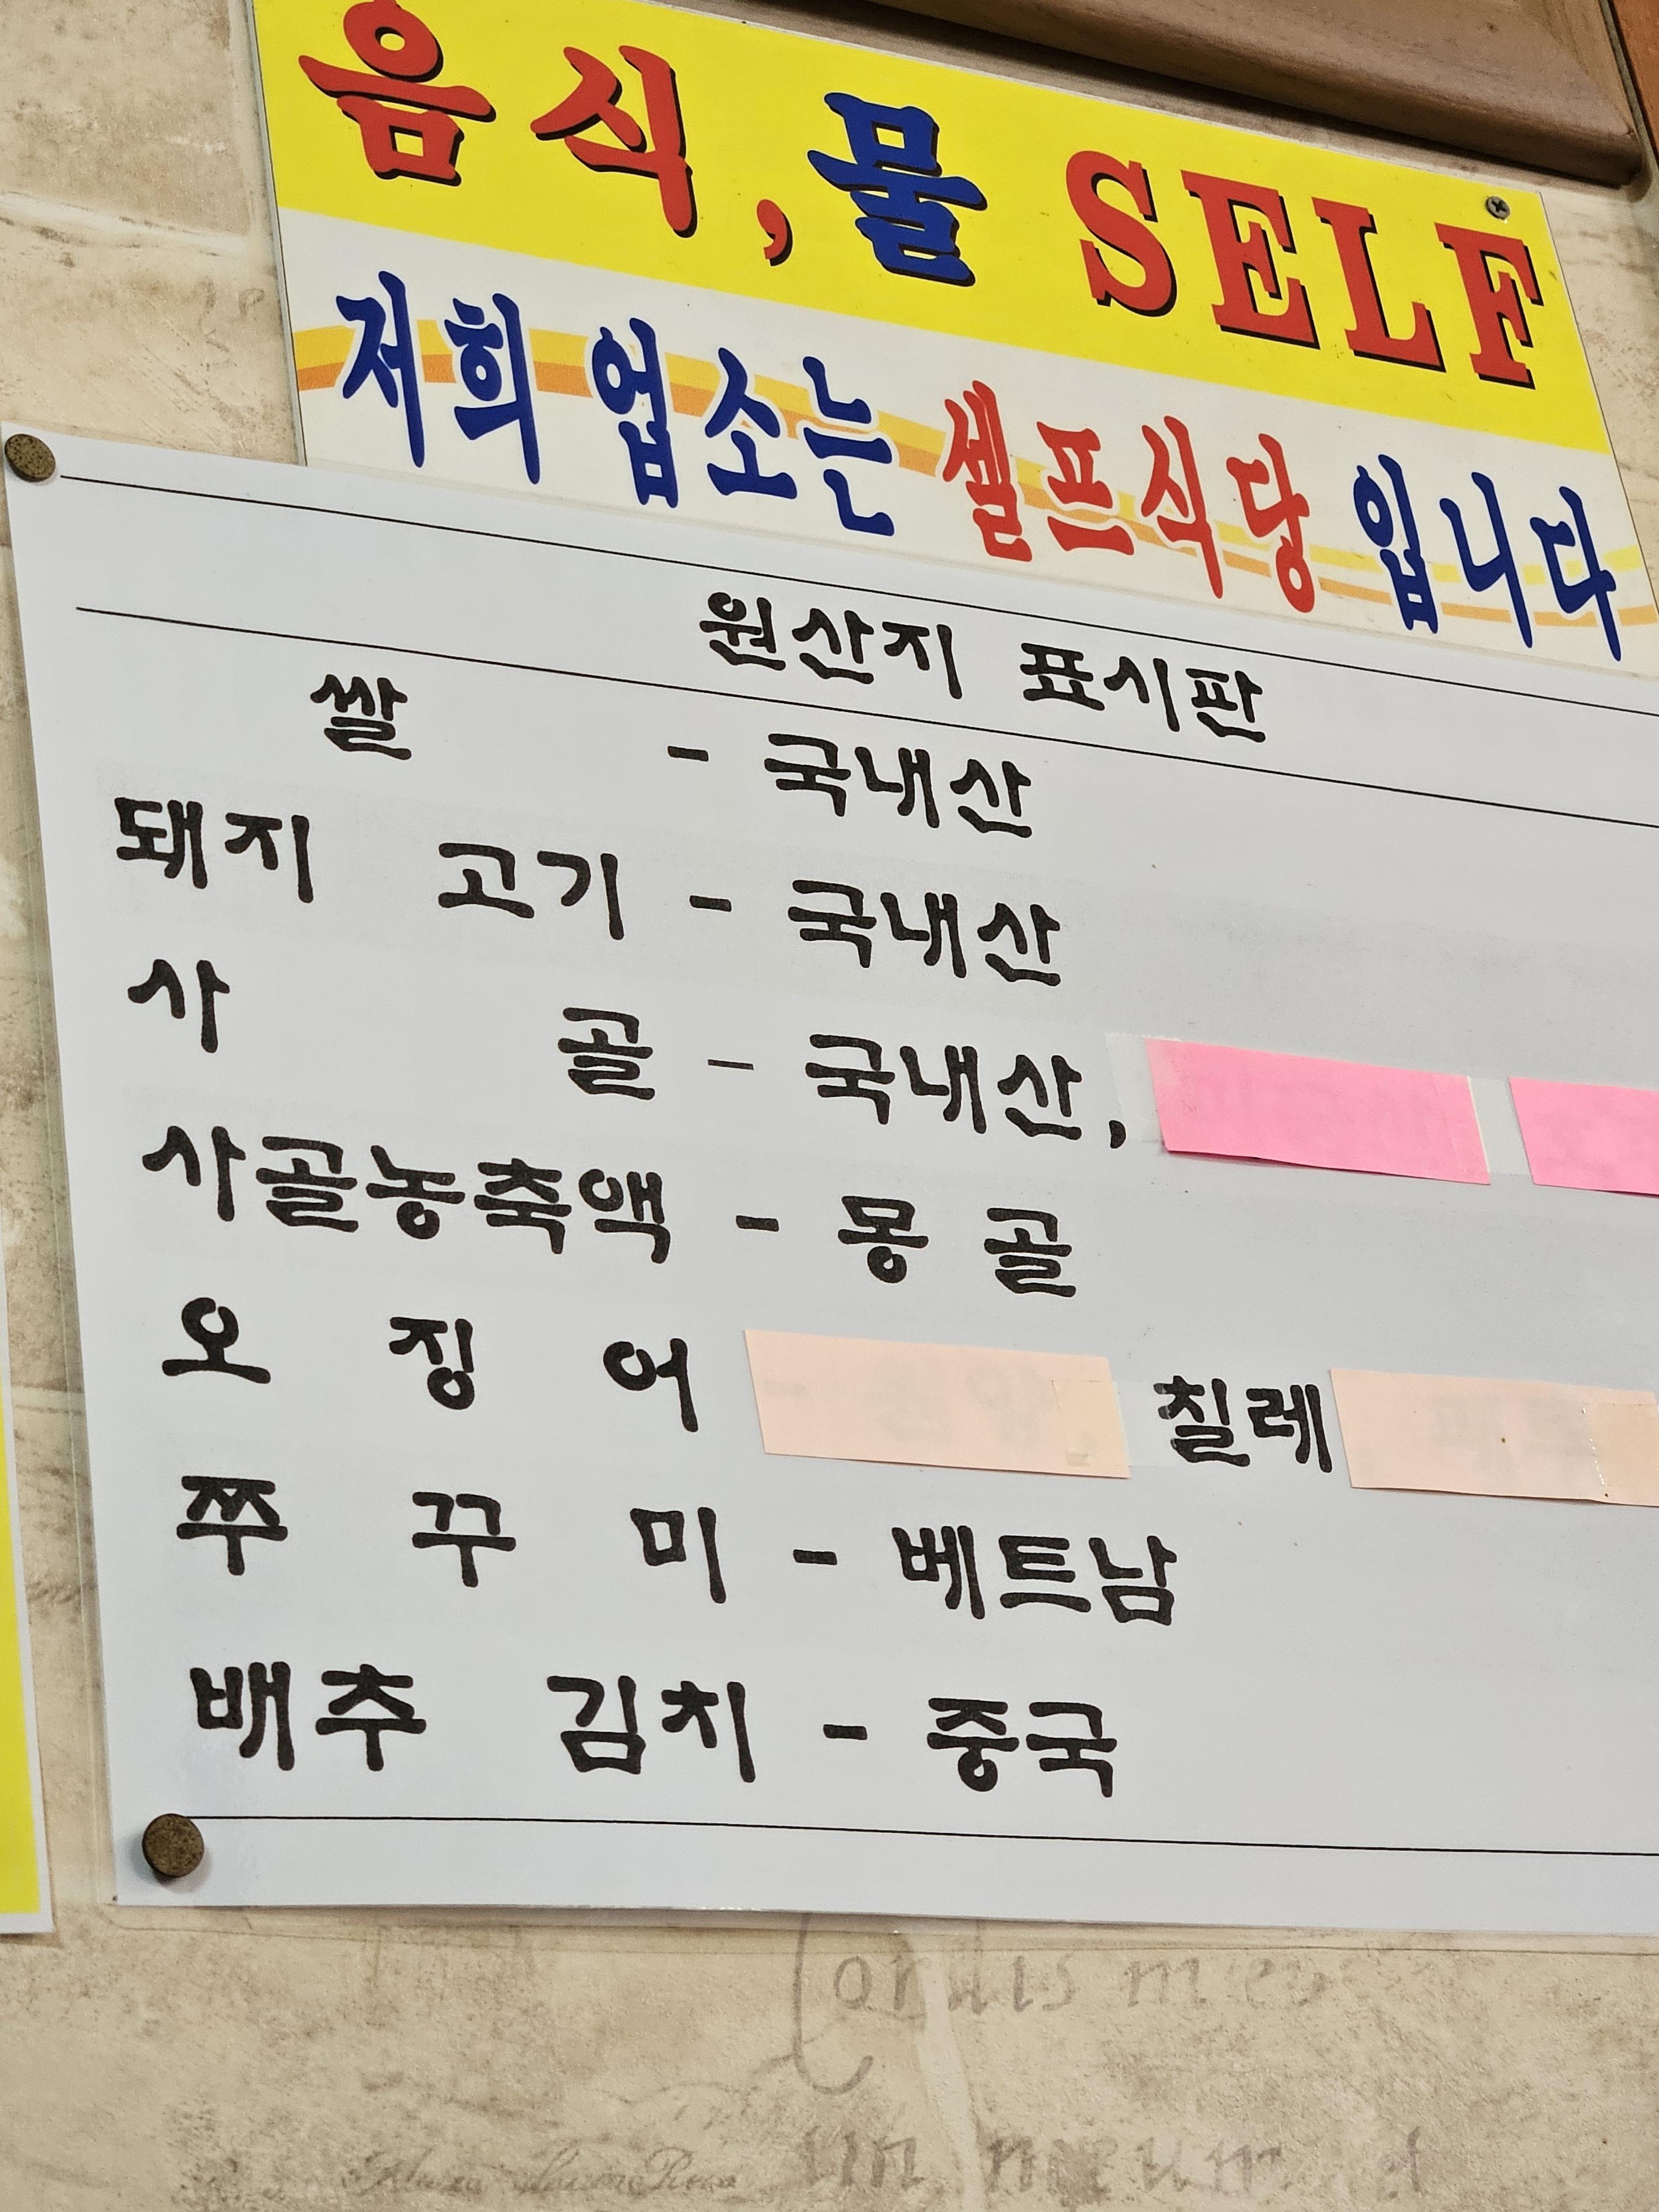 음식, 물 SELF
저희 업소는 셀프식당 입니다
원산지 표시판
쌀 - 국내산
돼지 고기 - 국내산
사 골 - 국내산,
사골농축액 - 몽 골
오 징 어 칠레
쭈 꾸 미 - 베트남
배추 김치 - 중국